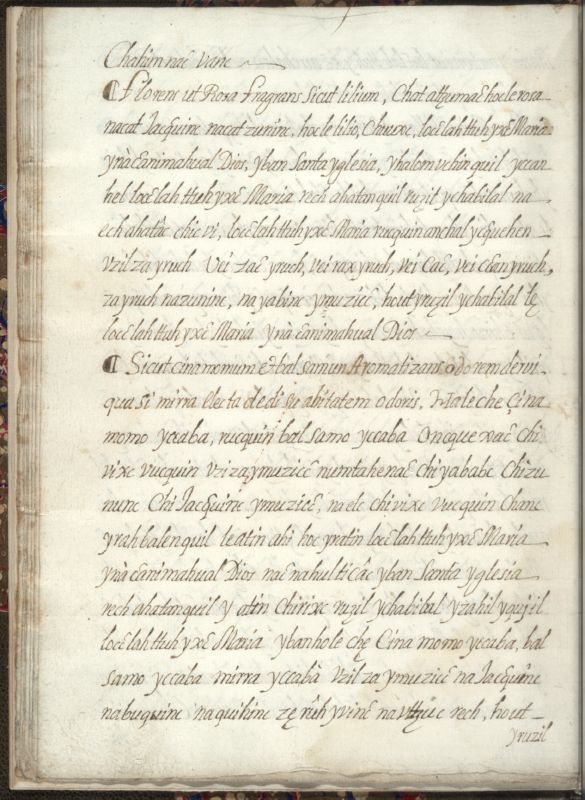 Chahim naĉ vanc
¶ Florens ut Roxa fragrans sicut lilium, Chat attzemaĉ hocle rosa
nacat Jacquinc nacat zuninc, hocle lilio, Chuexc, locĉlah ttuh yxĉ Maria
ynà ĉanimahual Dios, yban Santa yglesia, yhalom vchinquil yccan
hel locĉlah ttuh yxĉ Maria rech ahatanquil ruzil ychabilal na
ech ahatàc chic vi, locĉlah ttuh yxĉ Maria rucquin anchal ycquehen
vzilza yruch Vei tzaĉ yruch, vei rax yruch, vei Caĉ, vei ĉĉan yruch,
za yruch nazuninc, na yabinc ymuziĉĉ, hout yruzil ychabilal tę
locĉlah ttuh yxĉ Maria ynà ĉanimahual Dios
¶ Sicut cinamomum et balsamun Aromatizans odorem dervi
qua si mirra electa dedi su abitatem odoris, Hale che Çina
momo yccaba, rucquin balsamo yccaba Oncque xaĉ chi
vixc vucquin vziza ymuziĉĉ numtahenaĉ chi yababc Chizu
nunc Chi Jacquinc ymuziĉĉ, na elc chi vixc vucquin Chanc
yrah balenquil leatin ahi hoc yratin locĉlah ttuh yxĉ Maria
ynà ĉanimahual Dios naĉ nahulticâc yban Santa yglesia
rech ahatanquil y atin Chirixc ruzil ychabilal yzahil yquijil
locĉlah ttuh yxĉ Maria yban hole chę Cina momo yccaba, bal
samo yccaba mirra yccabà Vzilza ymuziĉĉ na Jacquinc
nabuquinc na quihinc zę rùh yvinĉ na vttzuc rech, hout
yruzil